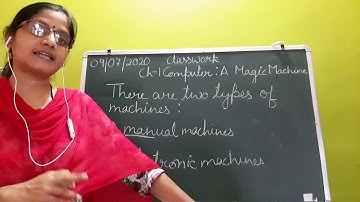 09/07/2020 Classwork
Ch-1 Computer: A Magic Machine
There are two types of
machines:
manual machines
tronic machines